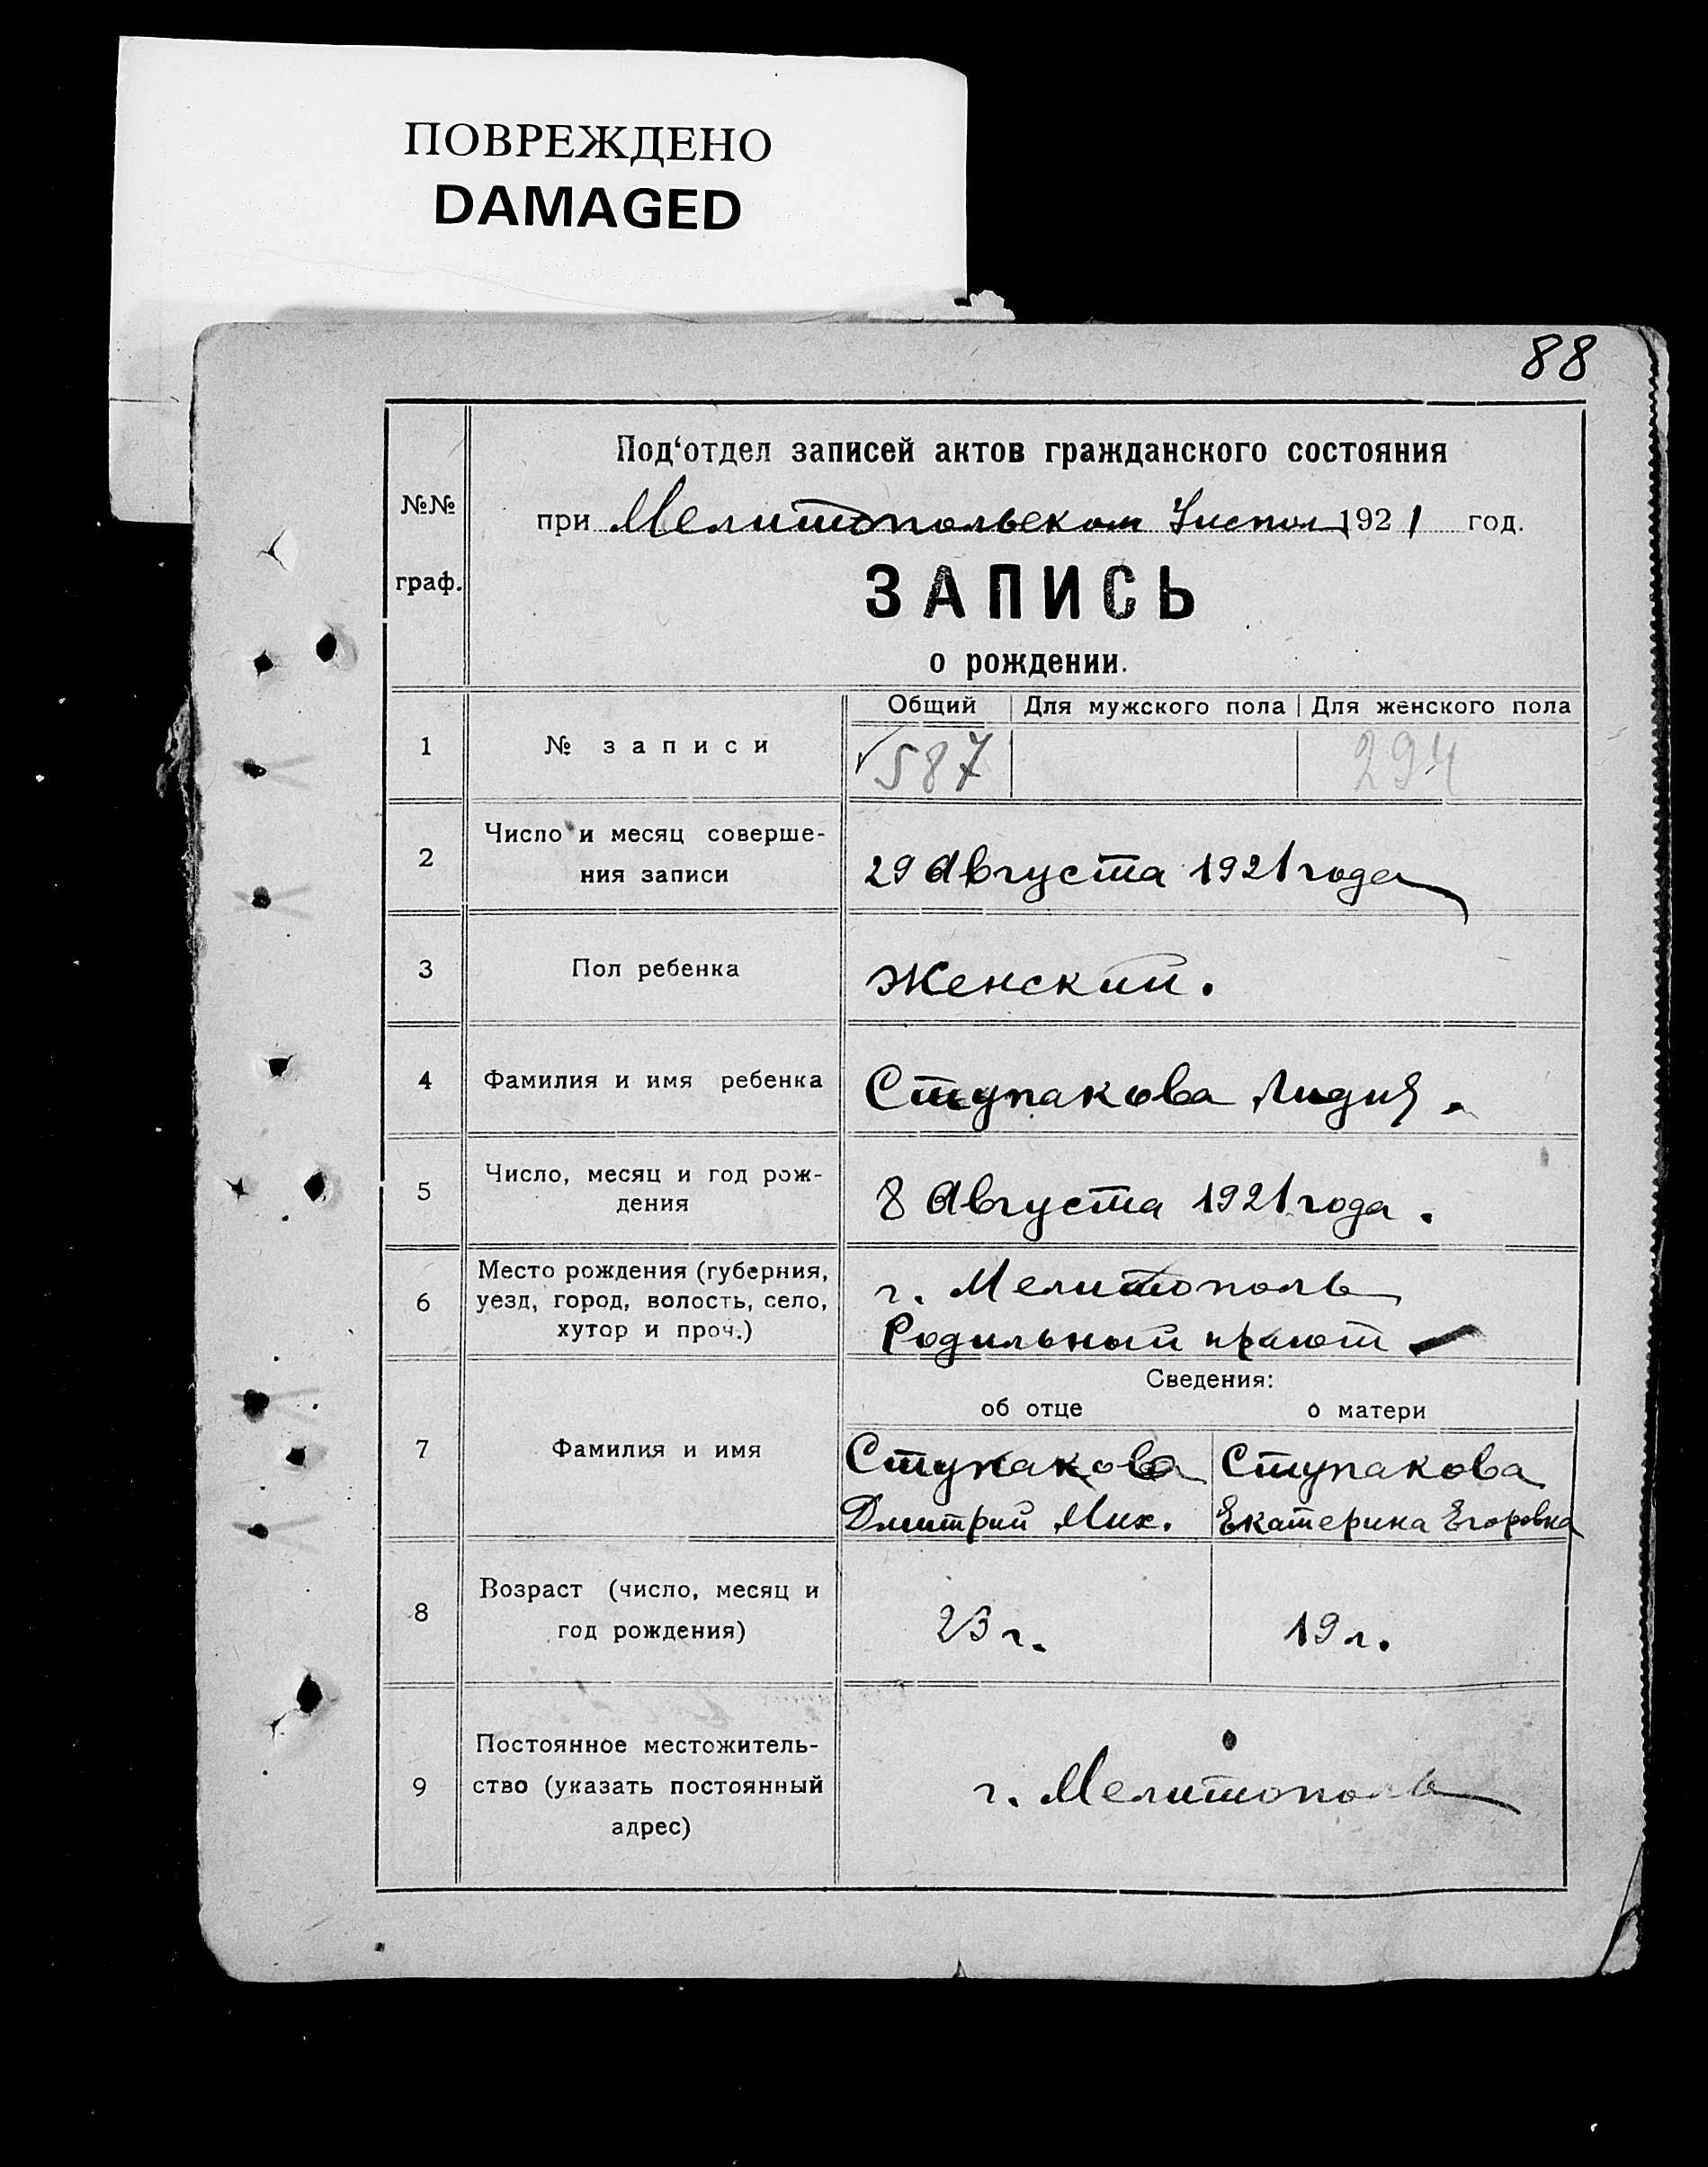 ПОВРЕЖДЕНО
DAMAGED
88
№№
граф.
Под‘отдел записей актов гражданского состояния
при Мелитопольском 1921 год.
ЗАПИСЬ
о рождении.
Общий Для мужского пола Для женского пола
1 № записи 587 294
2 Число и месяц соверше-
ния записи
29 Августа 1921 года
3 Пол ребенка Женский.
4 Фамилия и имя ребенка Ступакова Лидия.
5 Число, месяц и год рож-
дения
8 Августа 1921 года.
6 Место рождения (губерния,
уезд, город, волость, село,
хутор и проч.)
г. Мелитополь
Родильный приют
Сведения:
об отце о матери
7 Фамилия и имя
Ступакова Ступакова
Дмитрий Мих. Екатерина Егоровна
8 Возраст (число, месяц и
год рождения)
23 г. 19 л.
9 Постоянное местожитель-
ство (указать постоянный
адрес)
г. Мелитополь